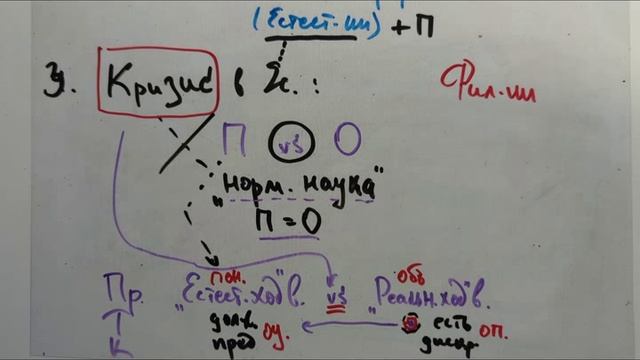 (Естест-ии) + П
3. Кризис в 2с.:
Фил-ии
П vs О
"норм. наука"
П = О
пон. объ
Пр. "Естест. ход" в. vs "Реальн. ход" в.
долж. оу. есть оп.
К пред дискр